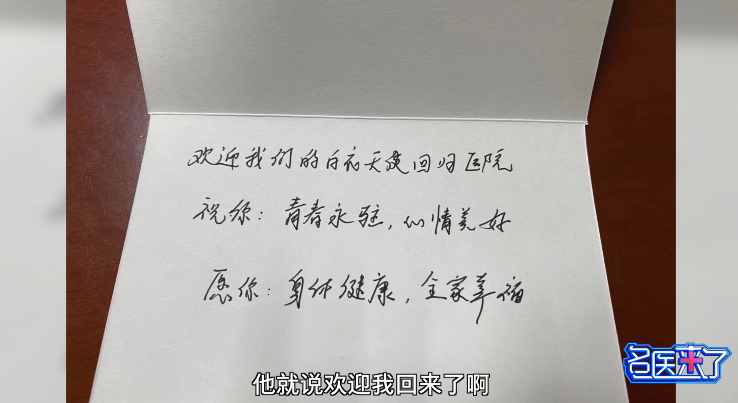 欢迎我们的白衣天使回归医院
祝你：青春永驻，心情美好
愿你：身体健康，全家幸福
他就说欢迎我回来了啊
名医来了